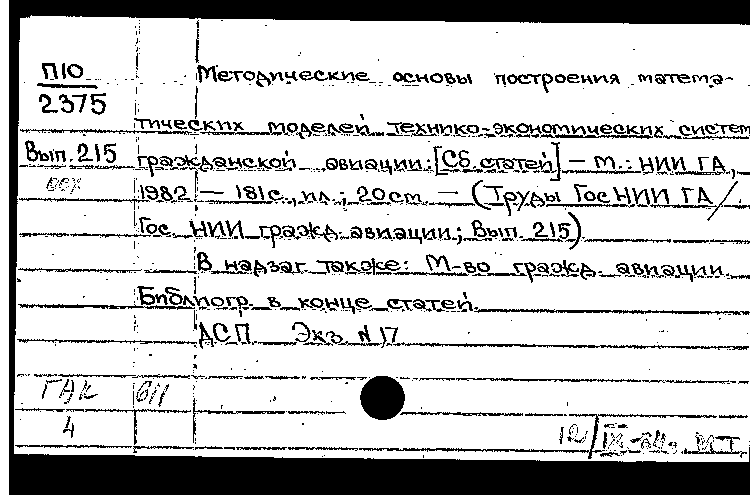 П10
2375
Вып. 215
Методические основы построения матема-
тических моделей технико-экономических систем
гражданской авиации: [Сб. статей] – М.: НИИ ГА,
1982 – 181 с., ил.; 20 см. – (Труды ГосНИИ ГА /
Гос. НИИ гражд. авиации; Вып. 215)
В надзаг. также: М-во гражд. авиации.
Библиогр. в конце статей.
ДСП Экз. N 17
ГАК 611
4
12/IX-84г.